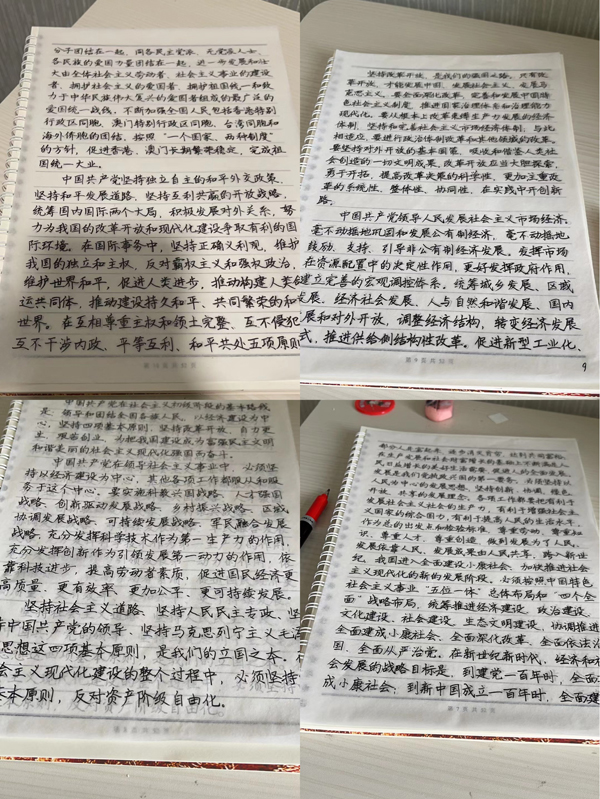 分子团结在一起,同各民主党派、无党派人士、
各民族的爱国力量团结在一起,进一步发展和壮
大由全体社会主义劳动者、社会主义事业的建设
者、拥护社会主义的爱国者、拥护祖国统一和致
力于中华民族伟大复兴的爱国者组成的最广泛的
爱国统一战线。不断加强全国人民包括香港特别
行政区同胞、澳门特别行政区同胞、台湾同胞和
海外侨胞的团结。按照“一个国家、两种制度”
的方针,促进香港、澳门长期繁荣稳定,完成祖
国统一大业。
中国共产党坚持独立自主的和平外交政策,
坚持和平发展道路,坚持互利共赢的开放战略,
统筹国内国际两个大局,积极发展对外关系,努
力为我国的改革开放和现代化建设争取有利的国
际环境。在国际事务中,坚持正确义利观,维护
我国的独立和主权,反对霸权主义和强权政治,
维护世界和平,促进人类进步,推动构建人类命
运共同体,推动建设持久和平、共同繁荣的和
世界。在互相尊重主权和领土完整、互不侵犯
互不干涉内政、平等互利、和平共处五项原则
坚持改革开放,是我们的强国之路。只有改
革开放,才能发展中国、发展社会主义、发展马
克思主义。要全面深化改革,完善和发展中国特
色社会主义制度,推进国家治理体系和治理能力
现代化。要从根本上改革束缚生产力发展的经济
体制,坚持和完善社会主义市场经济体制;与此
相适应,要进行政治体制改革和其他领域的改革。
要坚持对外开放的基本国策,吸收和借鉴人类社
会创造的一切文明成果。改革开放应当大胆探索,
勇于开拓,提高改革决策的科学性,更加注重改
革的系统性、整体性、协同性,在实践中开创新
路。
中国共产党领导人民发展社会主义市场经济。
毫不动摇地巩固和发展公有制经济,毫不动摇地
鼓励、支持、引导非公有制经济发展。发挥市场
在资源配置中的决定性作用,更好发挥政府作用,
建立完善的宏观调控体系。统筹城乡发展、区域
发展、经济社会发展、人与自然和谐发展、国内
展和对外开放,调整经济结构,转变经济发展
式,推进供给侧结构性改革。促进新型工业化、
9
中国共产党在社会主义初级阶段的基本路线
是:领导和团结全国各族人民,以经济建设为中
心,坚持四项基本原则,坚持改革开放,自力更
生,艰苦创业,为把我国建设成为富强民主文明
和谐美丽的社会主义现代化强国而奋斗。
中国共产党在领导社会主义事业中,必须坚
持以经济建设为中心,其他各项工作都服从和服
务于这个中心。要实施科教兴国战略、人才强国
战略、创新驱动发展战略、乡村振兴战略、区域
协调发展战略、可持续发展战略、军民融合发展
战略,充分发挥科学技术作为第一生产力的作用,
充分发挥创新作为引领发展第一动力的作用,依
靠科技进步,提高劳动者素质,促进国民经济更
高质量、更有效率、更加公平、更可持续发展。
坚持社会主义道路、坚持人民民主专政、坚
中国共产党的领导、坚持马克思列宁主义毛泽
思想这四项基本原则,是我们的立国之本。在
会主义现代化建设的整个过程中,必须坚持
基本原则,反对资产阶级自由化。
部分人先富起来,逐步消灭贫穷,达到共同富裕,
在生产发展和社会财富增长的基础上不断满足人
民日益增长的美好生活需要,促进人的全面发展。
发展是我们党执政兴国的第一要务。必须坚持以
人民为中心的发展思想,坚持创新、协调、绿色、
开放、共享的发展理念。各项工作都要把有利于
发展社会主义社会的生产力,有利于增强社会主
义国家的综合国力,有利于提高人民的生活水平,
作为总的出发点和检验标准,尊重劳动、尊重知
识、尊重人才、尊重创造,做到发展为了人民、
发展依靠人民、发展成果由人民共享。跨入新世
纪,我国进入全面建设小康社会、加快推进社会
主义现代化的新的发展阶段。必须按照中国特色
社会主义事业“五位一体”总体布局和“四个全
面”战略布局,统筹推进经济建设、政治建设、
文化建设、社会建设、生态文明建设,协调推进
全面建成小康社会、全面深化改革、全面依法治
国、全面从严治党。在新世纪新时代,经济和
会发展的战略目标是,到建党一百年时,全面
成小康社会;到新中国成立一百年时,全面建